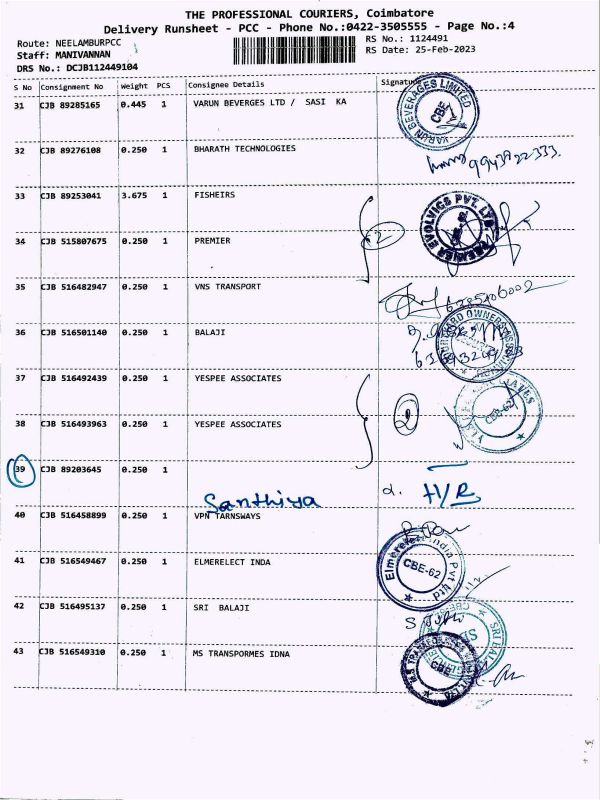 THE PROFESSIONAL COURIERS, Coimbatore
Delivery Runsheet - PCC - Phone No.:0422-3505555 - Page No.:4
Route: NEELAMBURPCC
RS No.: 1124491
Staff: MANIVANNAN
RS Date: 25-Feb-2023
DRS No.: DCJB112449104
S No Consignment No Weight PCS Consignee Details Signature
31 CJB 89285165 0.445 1 VARUN BEVERGES LTD / SASI KA
VARUN BEVERAGES LIMITED
CBE
32 CJB 89276108 0.250 1 BHARATH TECHNOLOGIES
33 CJB 89253041 3.675 1 FISHEIRS
2
PREMIER EVOLVICS PVT. LTD.
34 CJB 515807675 0.250 1 PREMIER
35 CJB 516482947 0.250 1 VNS TRANSPORT
36 CJB 516501140 0.250 1 BALAJI
37 CJB 516492439 0.250 1 YESPEE ASSOCIATES
2
CBE-62
38 CJB 516493963 0.250 1 YESPEE ASSOCIATES
39 CJB 89203645 0.250 1
Santhiya
H/R
40 CJB 516458899 0.250 1 VPN TARNSWAYS
41 CJB 516549467 0.250 1 ELMERELECT INDA
Elmerelect India Pvt Ltd
CBE-62
42 CJB 516495137 0.250 1 SRI BALAJI
43 CJB 516549310 0.250 1 MS TRANSPORMES IDNA
CBE